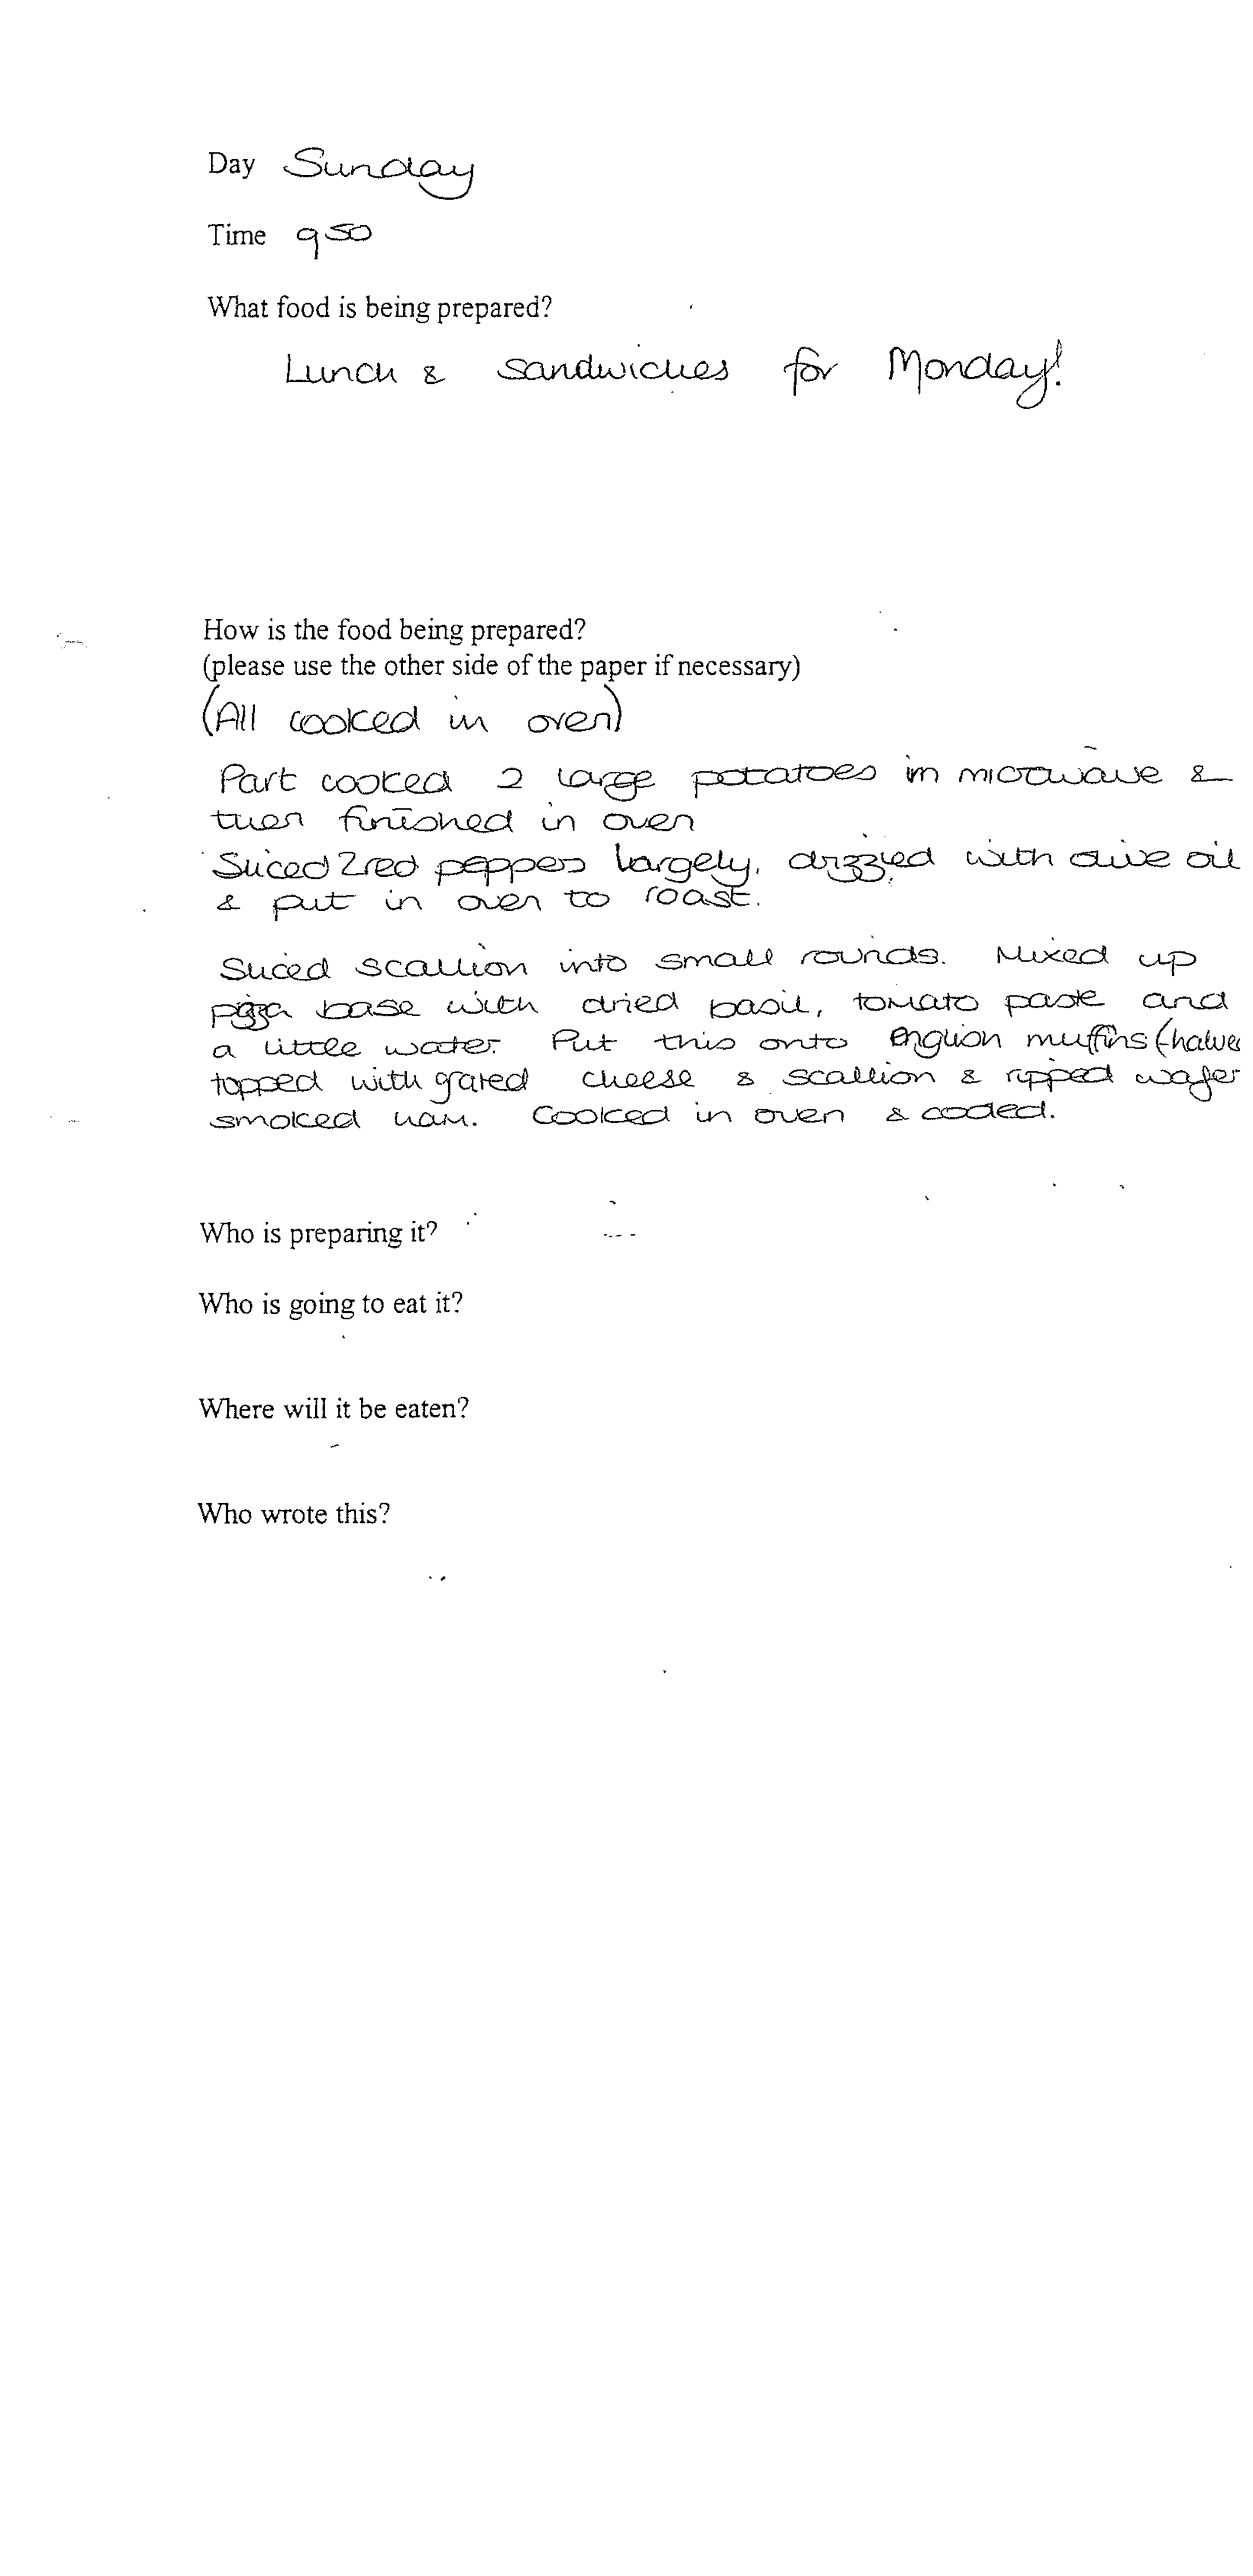 Day Sunday
Time 9 50
What food is being prepared?
Lunch & sandwiches for Monday!
How is the food being prepared?
(please use the other side of the paper if necessary)
(All cooked in oven)
Part cooked 2 large potatoes in microwave &
then finished in oven
Sliced 2 red peppers largely, drizzled with olive oil
& put in oven to roast.
Sliced scallion into small rounds. Mixed up
pizza base with dried basil, tomato paste and
a little water. Put this onto English muffins (halved
topped with grated cheese & scallion & ripped wafer
smoked ham. Cooked in oven & cooled.
Who is preparing it?
Who is going to eat it?
Where will it be eaten?
Who wrote this?